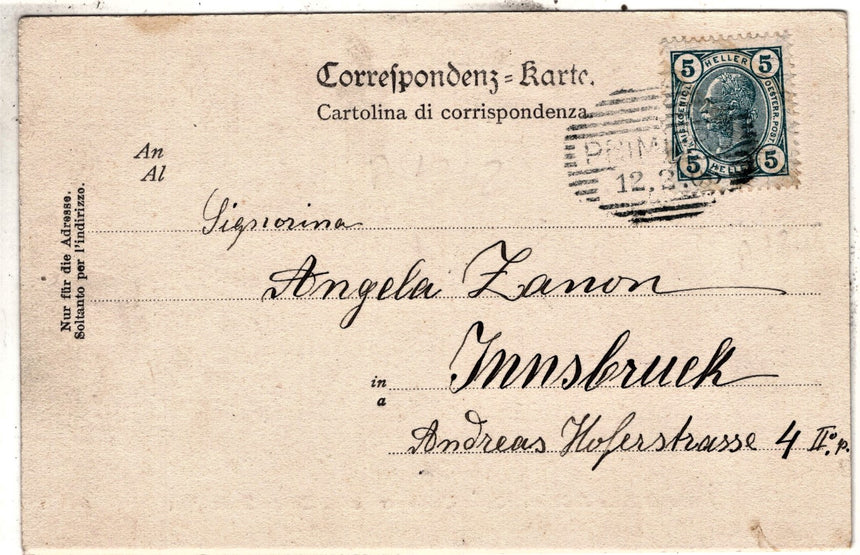 Correſpondenz=Karte.
Cartolina di corrispondenza.
5 HELLER 5
OESTERR. POST
5 HELLER 5
12. 2.
An
Al
Nur für die Adresse.
Soltanto per l'indirizzo.
Signorina
Angela Zanon
in
a
Innsbruck
Andreas Hoferstrasse 4 II.° p.